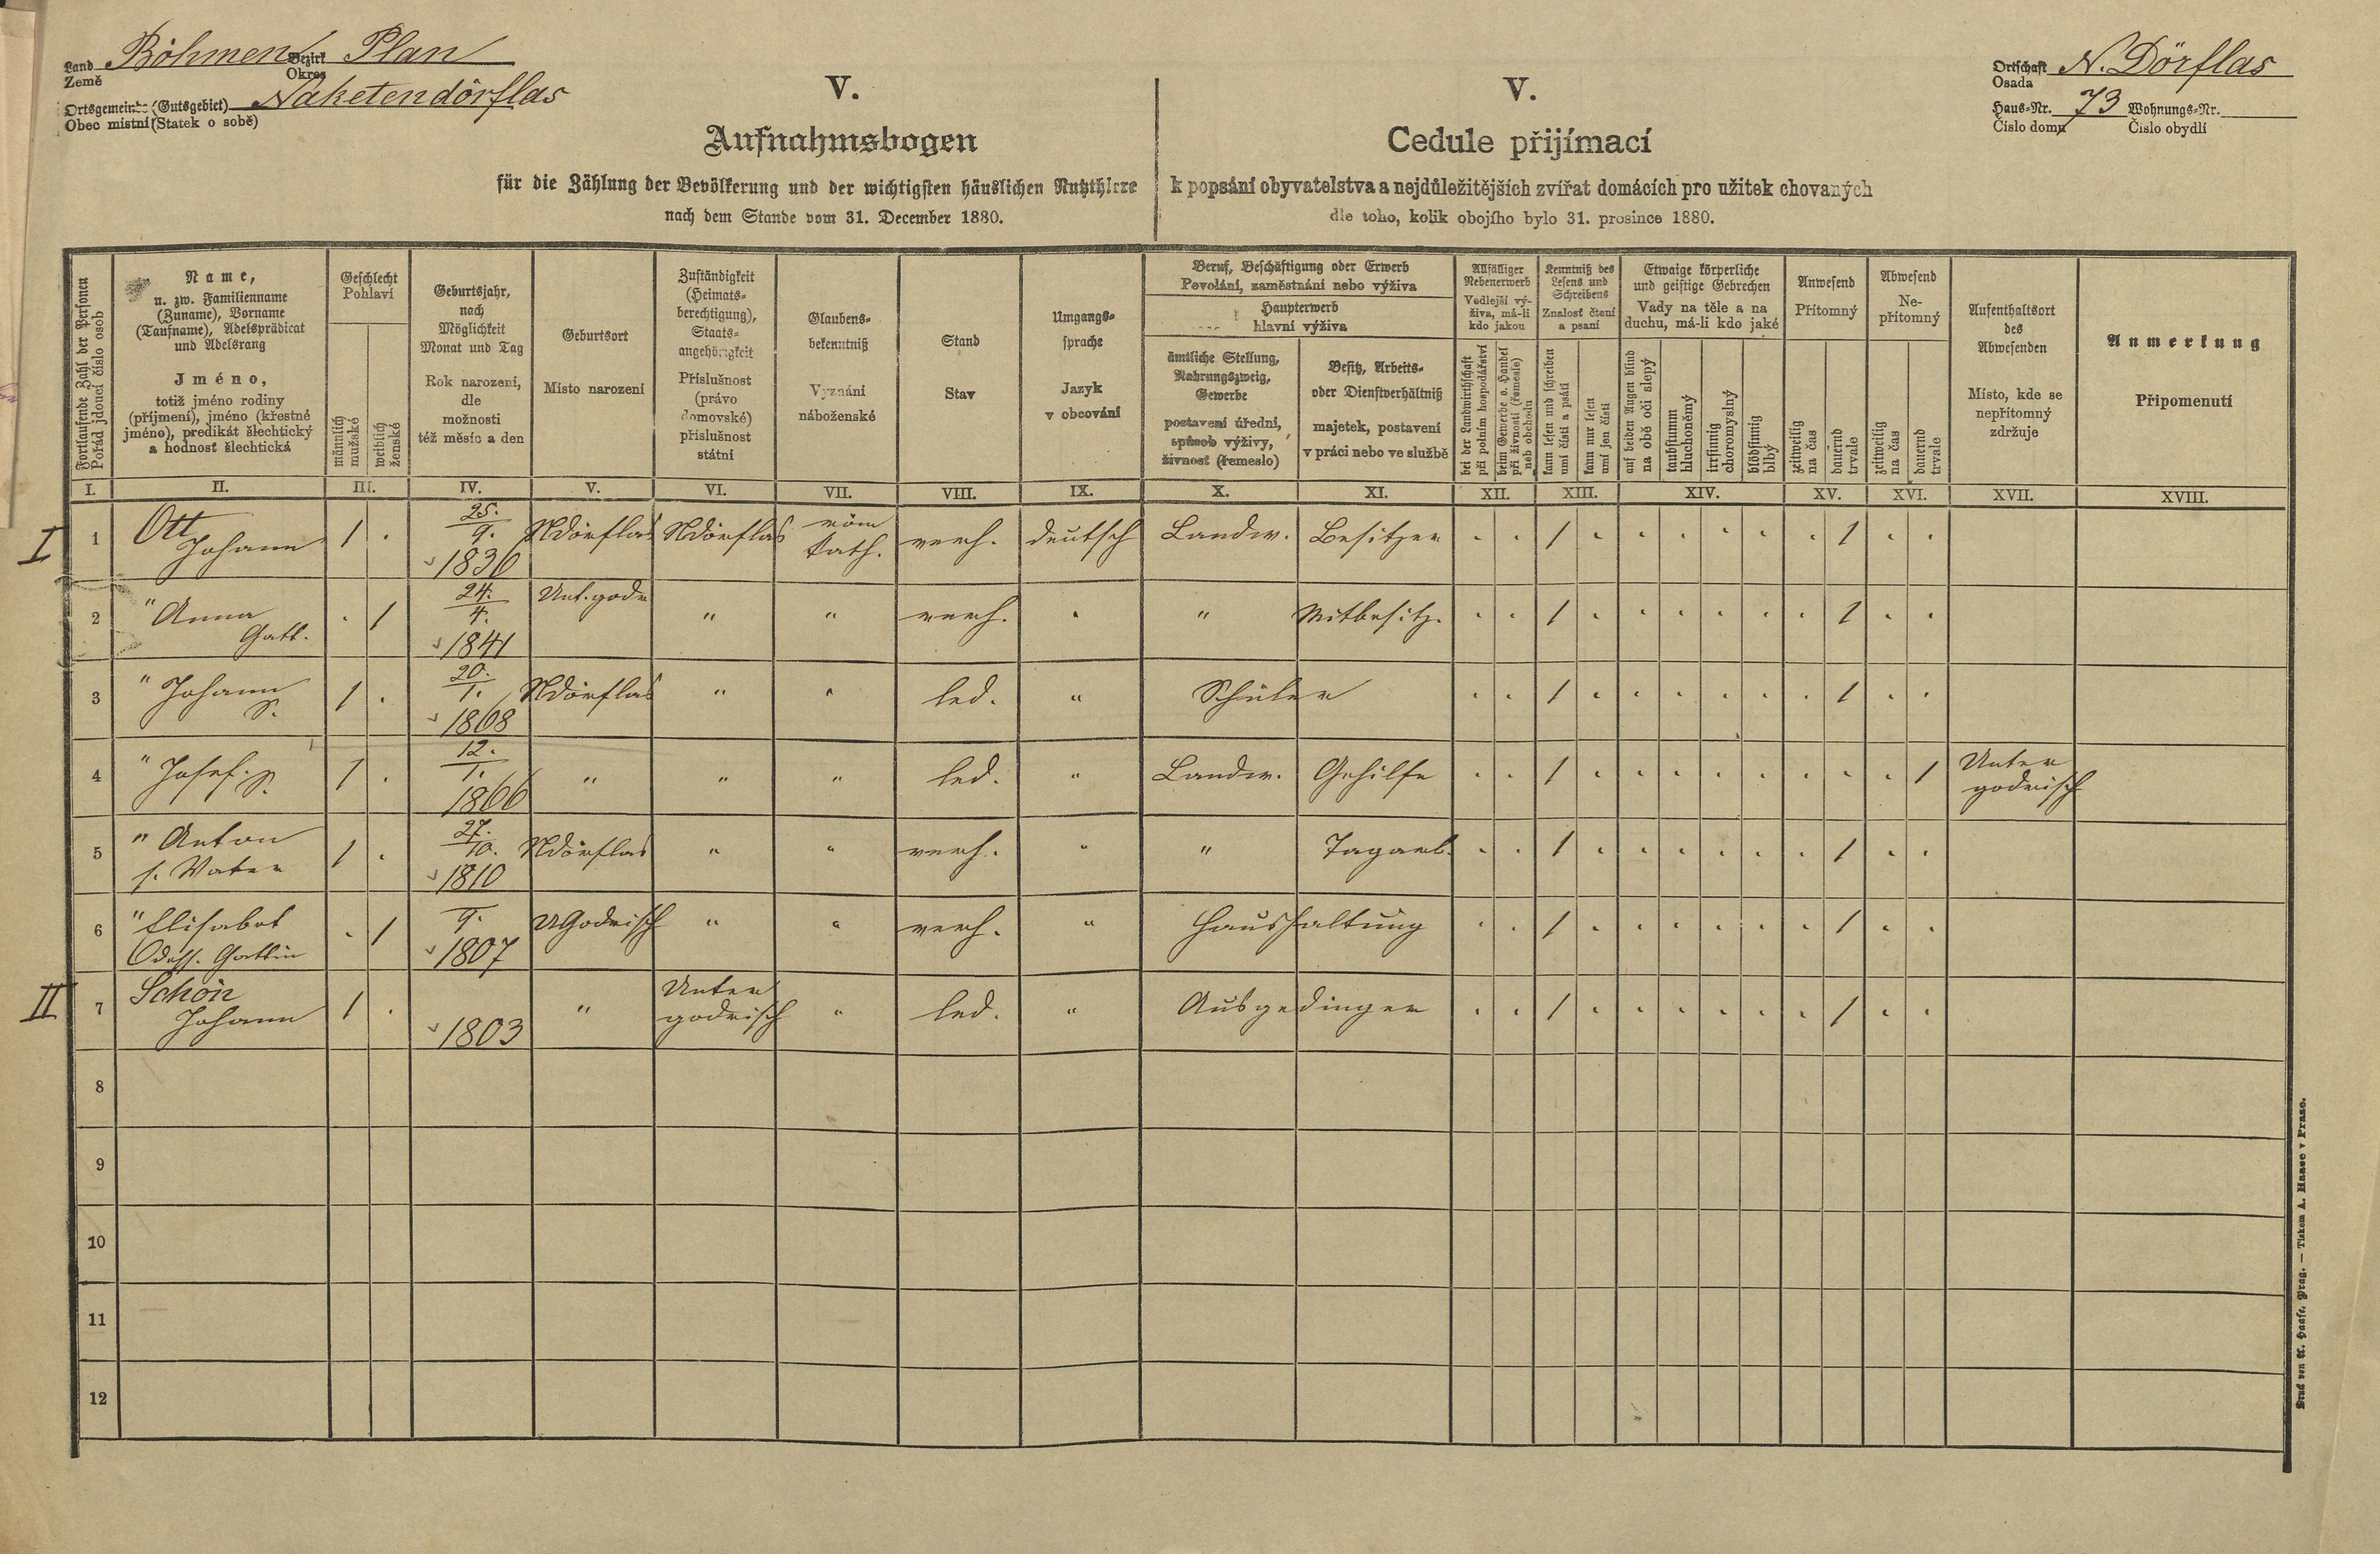 Land Böhmen Bezirk Plan
Země Okres
Ortsgemeinde (Gutsgebiet) Naketendörflas
Obec místní (Statek o sobě)
Ortschaft N. Dörflas
Osada
Haus-Nr. 73 Wohnungs-Nr.
Číslo domu Číslo obydlí
V.
Aufnahmsbogen
für die Zählung der Bevölkerung und der wichtigsten häuslichen Nutzthiere
nach dem Stande vom 31. December 1880.
V.
Cedule přijímací
k popsání obyvatelstva a nejdůležitějších zvířat domácích pro užitek chovaných
dle toho, kolik obojího bylo 31. prosince 1880.
Fortlaufende Zahl der Personen
Pořád jdoucí číslo osob
Name,
u. zw. Familienname
(Zuname), Vorname
(Taufname), Adelsprädicat
und Adelsrang
Jméno,
totiž jméno rodiny
(příjmení), jméno (křestné
jméno), predikát šlechtický
a hodnosť šlechtická
Geschlecht
Pohlaví
männlich
mužské
weiblich
ženské
Geburtsjahr,
nach
Möglichkeit
Monat und Tag
Rok narození,
dle
možnosti
též měsíc a den
Geburtsort
Místo narození
Zuständigkeit
(Heimats-
berechtigung),
Staats-
angehörigkeit
Příslušnost
(právo
domovské)
příslušnost
státní
Glaubens-
bekenntniß
Vyznání
náboženské
Stand
Stav
Umgangs-
sprache
Jazyk
v obcování
Beruf, Beschäftigung oder Erwerb
Povolání, zaměstnání nebo výživa
Haupterwerb
hlavní výživa
ämtliche Stellung,
Nahrungszweig,
Gewerbe
postavení úřední,
spůsob výživy,
živnosť (řemeslo)
Besitz, Arbeits-
oder Dienstverhältniß
majetek, postavení
v práci nebo ve službě
Allfälliger
Nebenerwerb
Vedlejší vý-
živa, má-li
kdo jakou
bei der Landwirthschaft
při polním hospodářství
beim Gewerbe o. Handel
při živnosti (řemesle)
neb obchodu
Kenntniß des
Lesens und
Schreibens
Znalosť čtení
a psaní
kann lesen und schreiben
umí čísti a psáti
kann nur lesen
umí jen čísti
Etwaige körperliche
und geistige Gebrechen
Vady na těle a na
duchu, má-li kdo jaké
auf beiden Augen blind
na obě oči slepý
taubstumm
hluchoněmý
irrsinnig
choromyslný
blödsinnig
blbý
Anwesend
Přítomný
zeitweilig
na čas
dauernd
trvale
Abwesend
Ne-
přítomný
zeitweilig
na čas
dauernd
trvale
Aufenthaltsort
des
Abwesenden
Místo, kde se
nepřítomný
zdržuje
Anmerkung
Připomenutí
I. II. III. IV. V. VI. VII. VIII. IX. X. XI. XII. XIII. XIV. XV. XVI. XVII. XVIII.
I 1 Ott Johann 1 . 25./9. 1836 NDörflas NDörflas röm kath. verh. deutsch Landw. Besitzer . . 1 . . . . . . 1 . .
2 " Anna Gatt. . 1 24./4. 1841 Unt.godr " " verh. " " Mitbesitz. . . 1 . . . . . . 1 . .
3 " Johann S. 1 . 20./1. 1868 NDörflas " " led. " Schüler . . 1 . . . . . . 1 . .
4 " Josef. S. 1 . 12./1. 1866 " " " led. " Landw. Gehilfe . . 1 . . . . . . . . 1 Unter godrisch
5 " Anton s. Vater 1 . 27./10. 1810 NDörflas " " verh. " " Tagarb. . . 1 . . . . . . 1 . .
6 " Elisabet Gattin . 1 9. 1807 UGodrisch " " verh. " Haushaltung . . 1 . . . . . . 1 . .
II 7 Schön Johann 1 . 1803 " Unter godrisch " led. " Ausgedinger . . 1 . . . . . . 1 . .
8
9
10
11
12
Druck von A. Haase, Prag. — Tiskem A. Haase v Praze.